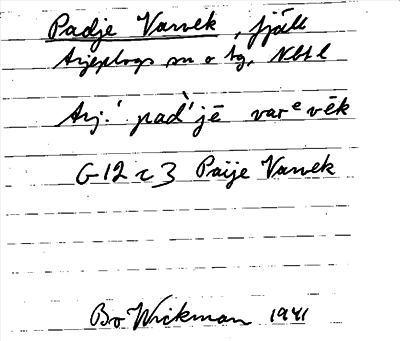 Padje Varvek, fjäll
Arjeplogs sn o tg, Nbtl
Arj.' pad'jē varᵉvēk
G 12 c 3 Paije Varvek
Bo Wickman 1941